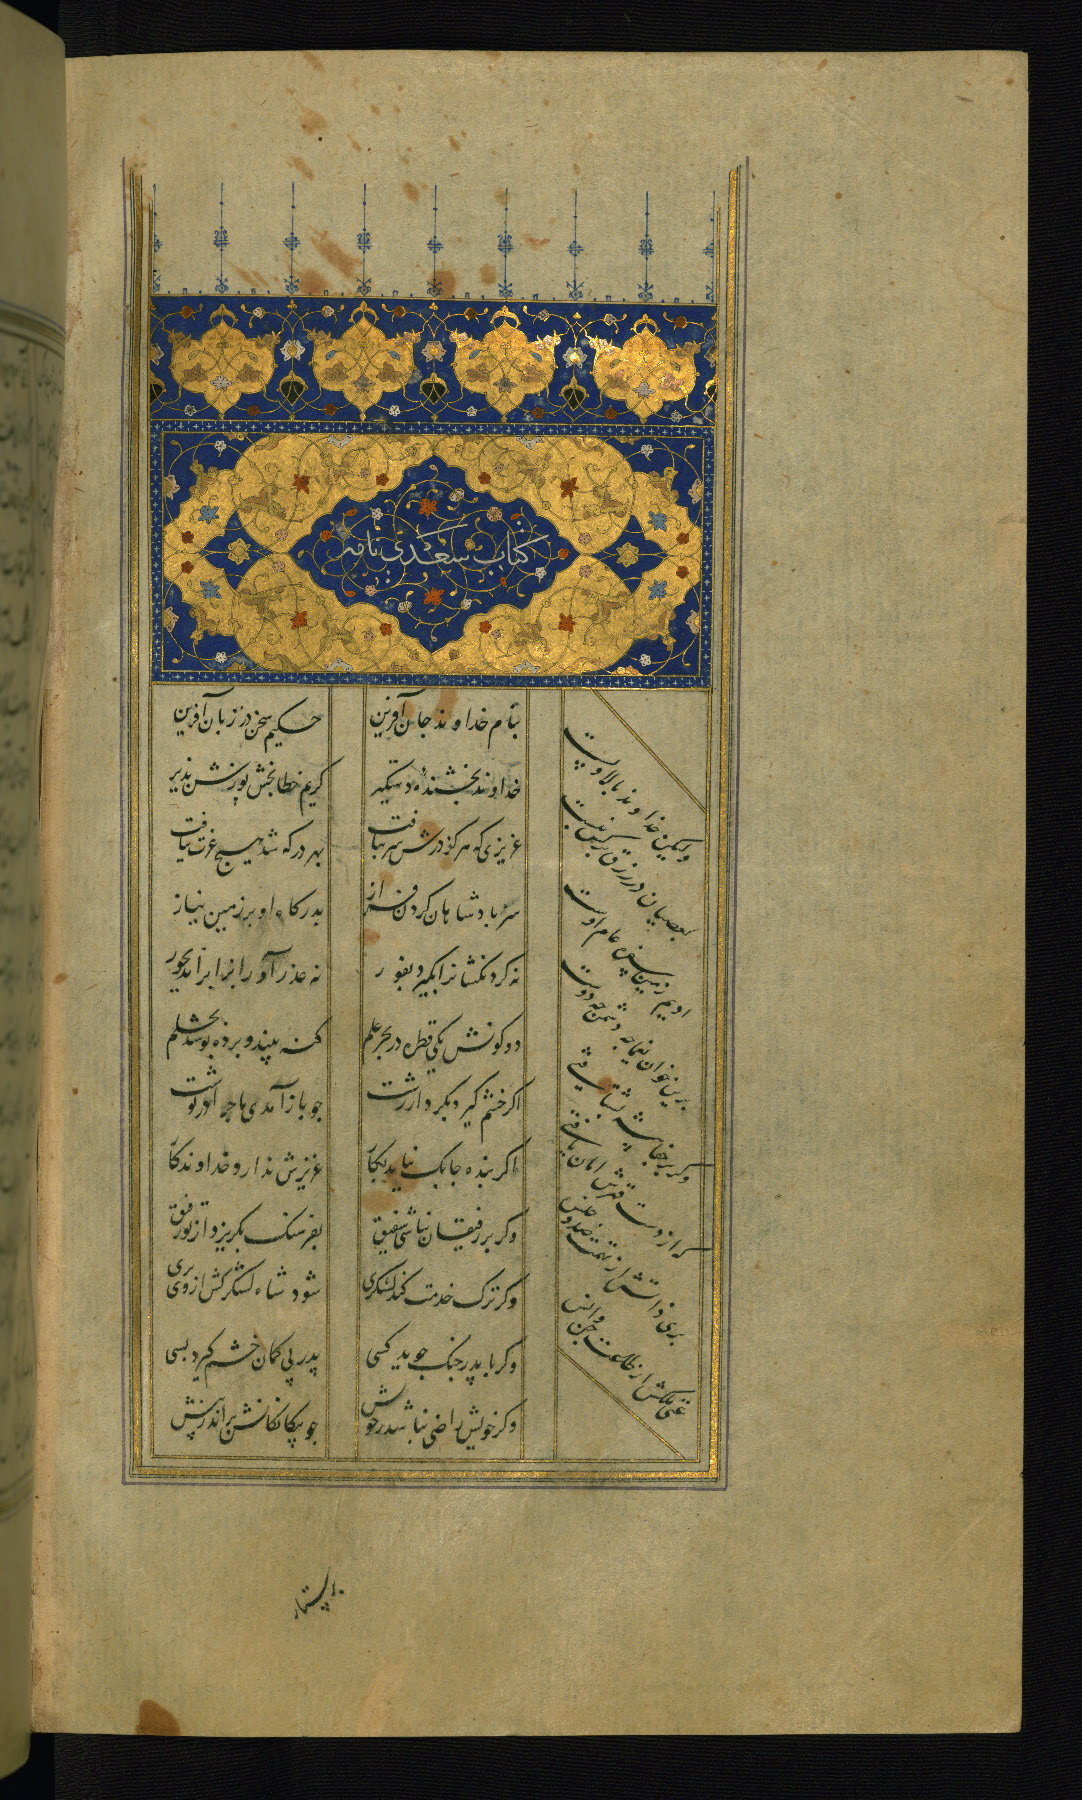 کتاب سعدی نامه
بنام خداوند جان آفرین حکیم سخن در زبان آفرین
خداوند بخشندهٔ دستکیر کریم خطابخش پوزش پذیر
عزیزی که هرکز درش سر بتافت بهر در که شد هیچ عزت نیافت
سر بادشاهان کردن فراز بدرکاه او بر زمین نیاز
نه کردنکشانرا بکیرد بفور نه عذر آورانرا براند بجور
دو کونش یکی قطره در بحر علم کنه بیند و برده پوشد بحلم
اکر خشم کیرد بکردار زشت جو باز آمدی ماجرا در نوشت
اکر بنده جابک نیاید بکار عزیزش ندارد خداوندکار
وکر بر رفیقان نباشی شفیق بفرسنک بکریزد از تو رفیق
وکر ترک خدمت کند لشکری شود شاه لشکرکش از وی بری
وکر با پدر جنک جوید کسی پدر بی کمان خشم کیرد بسی
وکر خویش راضی نباشد ز خویش جو بیکانکانش براند ز پیش
ولیکن خداوند بالا و پست
بعصیان در رزق بر کس نبست
ادیم زمین سفرهٔ عام اوست
برین خوان یغما چه دشمن چه دوست
وکر بر جفا پیشه بشتافتی
که از دست قهرش امان یافتی
بری ذاتش از تهمت ضد و جنس
غنی ملکش از طاعت جن و انس
پرستار